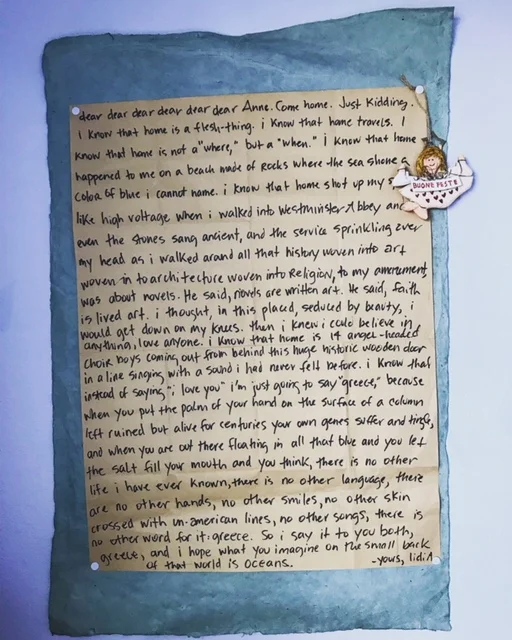 dear dear dear dear dear dear Anne. Come home. Just Kidding.
I know that home is a flesh-thing. i know that home travels. I
know that home is not a "where," but a "when." I know that home
happened to me on a beach made of rocks where the sea shone a
color of blue i cannot name. i know that home shot up my
like high voltage when i walked into Westminster Abbey and
even the stones sang ancient, and the service sprinkling over
my head as i walked around all that history woven into art
woven into architecture woven into Religion, to my amazement,
was about novels. He said, novels are written art. He said, faith
is lived art. i thought, in this placed, seduced by beauty, i
would get down on my knees. then i knew i could believe in
anything, love anyone. i know that home is 14 angel-headed
choir boys coming out from behind this huge historic wooden door
in a line singing with a sound i had never felt before. i know that
instead of saying "i love you" i'm just going to say "greece," because
when you put the palm of your hand on the surface of a column
left ruined but alive for centuries your own genes suffer and tingle,
and when you are out there floating in all that blue and you let
the salt fill your mouth and you think, there is no other
life i have ever known, there is no other language, there
are no other hands, no other smiles, no other skin
crossed with un-american lines, no other songs, there is
no other word for it: greece. So i say it to you both,
greece, and i hope what you imagine on the small back
of that world is oceans.
-yours, lidiA
BUONE FESTE